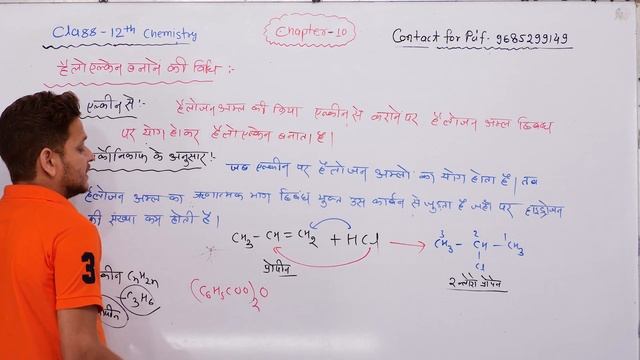 Class-12th Chemistry
Chapter-10
Contact for Pdf- 9685299149
हैलोएल्केन बनाने की विधि :-
एल्कीन से :- हैलोजन अम्ल की क्रिया एल्कीन से कराने पर हैलोजन अम्ल द्विबंध
पर योग होकर हैलोएल्केन बनाता है।
मार्कोनिकॉफ के अनुसार :- जब एल्कीन पर हैलोजन अम्लो का योग होता है। तब
हैलोजन अम्ल का ऋणात्मक भाग द्विबंध युक्त उस कार्बन से जुड़ता है जहाँ पर हाइड्रोजन
की संख्या कम होती है।
CH3 - CH = CH2 + HCl → 3CH3 - 2CH - 1CH3
Cl
प्रोपीन
2 क्लोरो प्रोपेन
कीन CnH2n
C3H6
(C6H5COO)2O
पीन
3